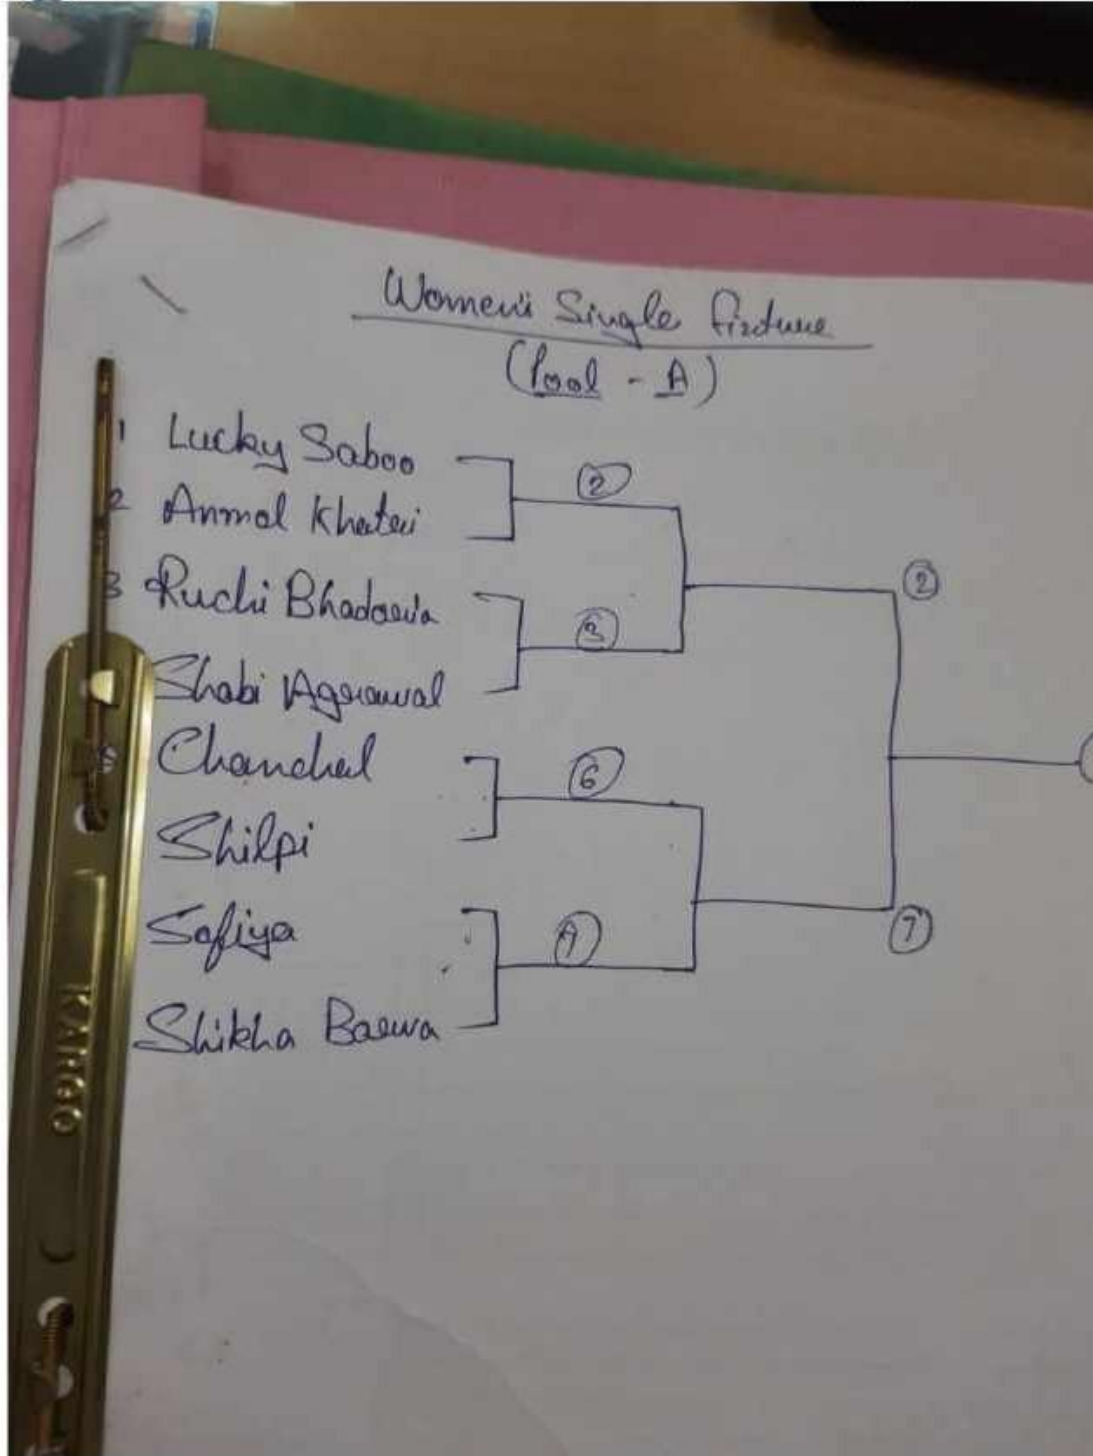 Women's Single fixture
(Pool - A)
1 Lucky Saboo
2 Anmol Khatri
3 Ruchi Bhadoria
Shabi Agrawal
Chanchal
Shilpi
Sofiya
Shikha Barwa
②
③
⑥
②
⑦
KANGO